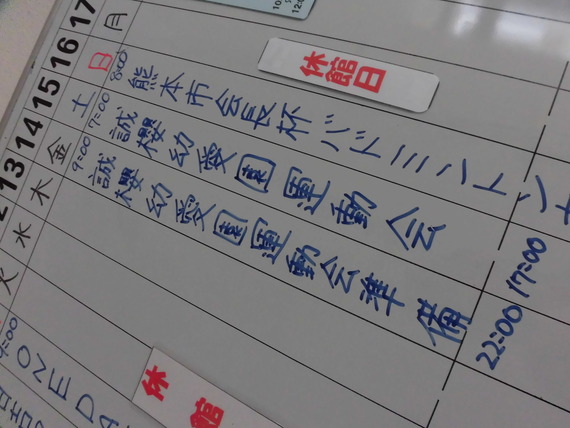 17 月 休館日
16 日 8:00 熊本市会長杯バドミントン
15 土 7:00 誠櫻幼愛園運動会 17:00
14 金 9:00 誠櫻幼愛園運動会準備 22:00
13 木
水
火
ONE DA
休館